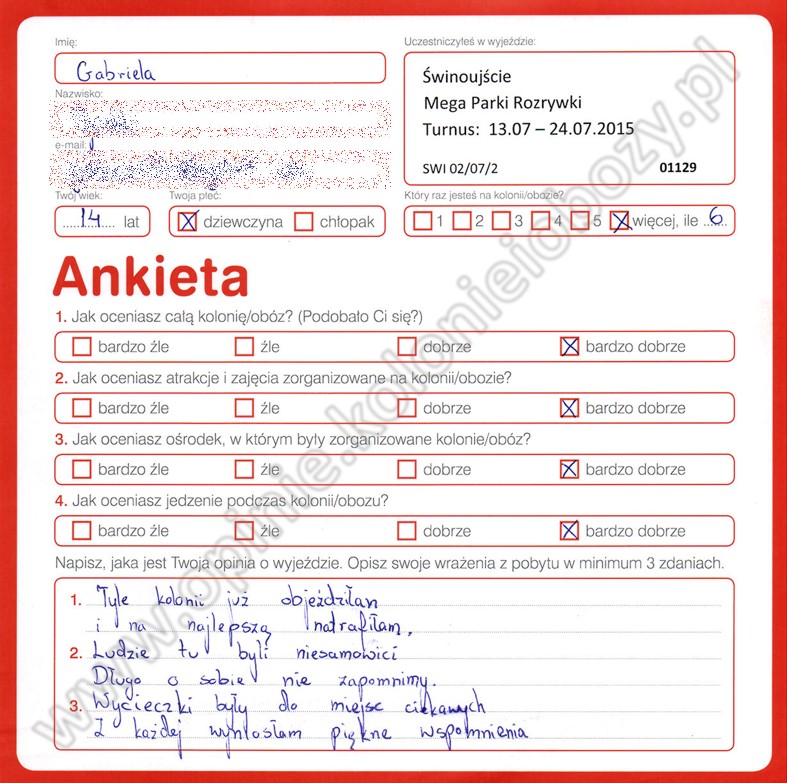 Imię:
Gabriela
Uczestniczyłeś w wyjeździe:
Świnoujście
Mega Parki Rozrywki
Turnus: 13.07 – 24.07.2015
SWI 02/07/2 01129
Nazwisko:
e-mail:
Twój wiek:
14 lat
Twoja płeć:
dziewczyna chłopak
Który raz jesteś na kolonii/obozie?
1 2 3 4 5 więcej, ile 6
Ankieta
1. Jak oceniasz całą kolonię/obóz? (Podobało Ci się?)
bardzo źle źle dobrze bardzo dobrze
2. Jak oceniasz atrakcje i zajęcia zorganizowane na kolonii/obozie?
bardzo źle źle dobrze bardzo dobrze
3. Jak oceniasz ośrodek, w którym były zorganizowane kolonie/obóz?
bardzo źle źle dobrze bardzo dobrze
4. Jak oceniasz jedzenie podczas kolonii/obozu?
bardzo źle źle dobrze bardzo dobrze
Napisz, jaka jest Twoja opinia o wyjeździe. Opisz swoje wrażenia z pobytu w minimum 3 zdaniach.
1. Tyle kolonii już objeździłam
i na najlepszą natrafiłam,
2. Ludzie tu byli niesamowici
Długo o sobie nie zapomnimy.
3. Wycieczki były do miejsc ciekawych
Z każdej wyniosłam piękne wspomnienia
www.opinie.kolonieiobozy.pl